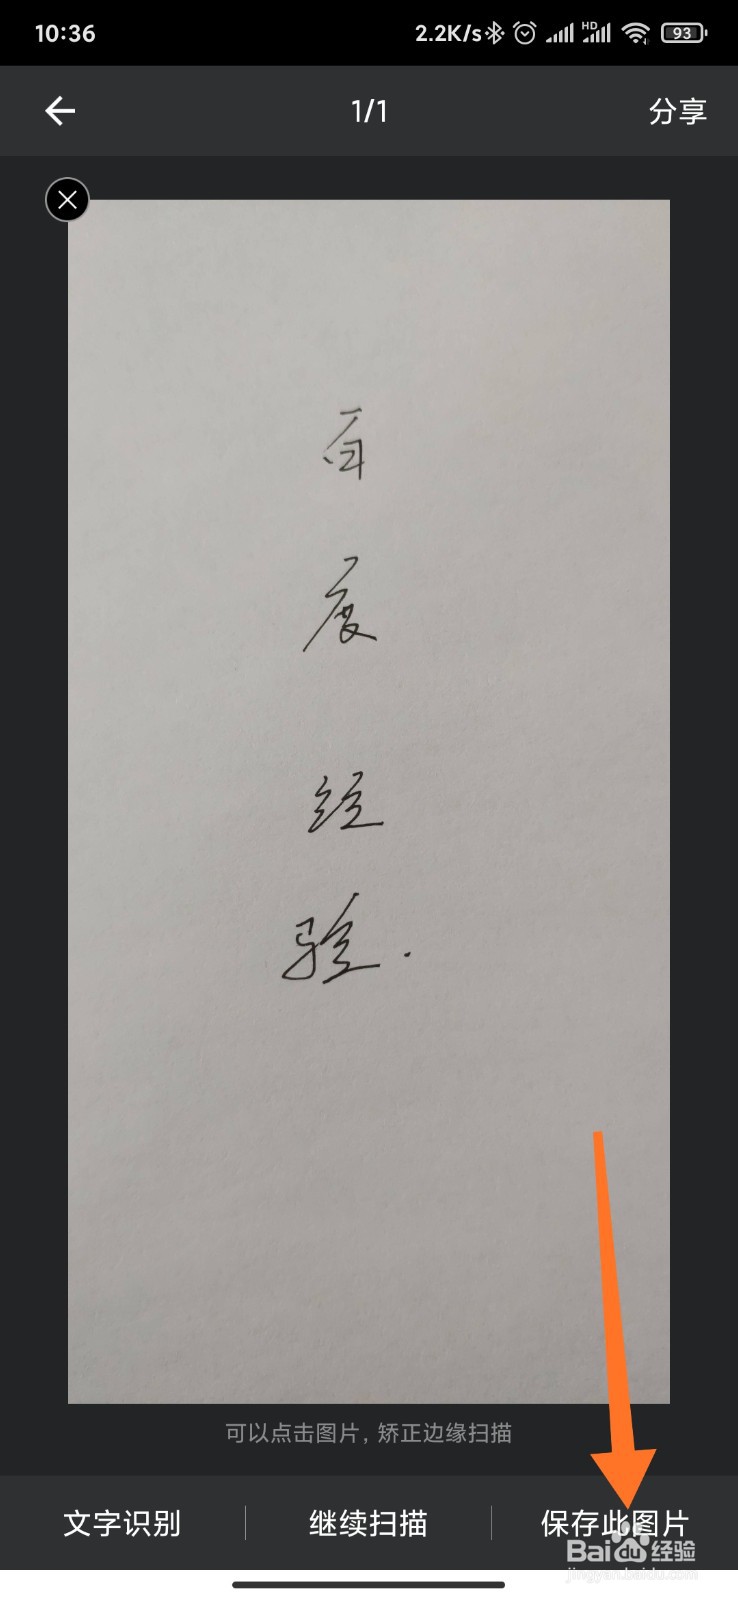 10:36
2.2K/s HD 93
1/1
分享
百
度
经
验.
可以点击图片, 矫正边缘扫描
文字识别
继续扫描
保存此图片
Baidu经验
jingyan.baidu.com